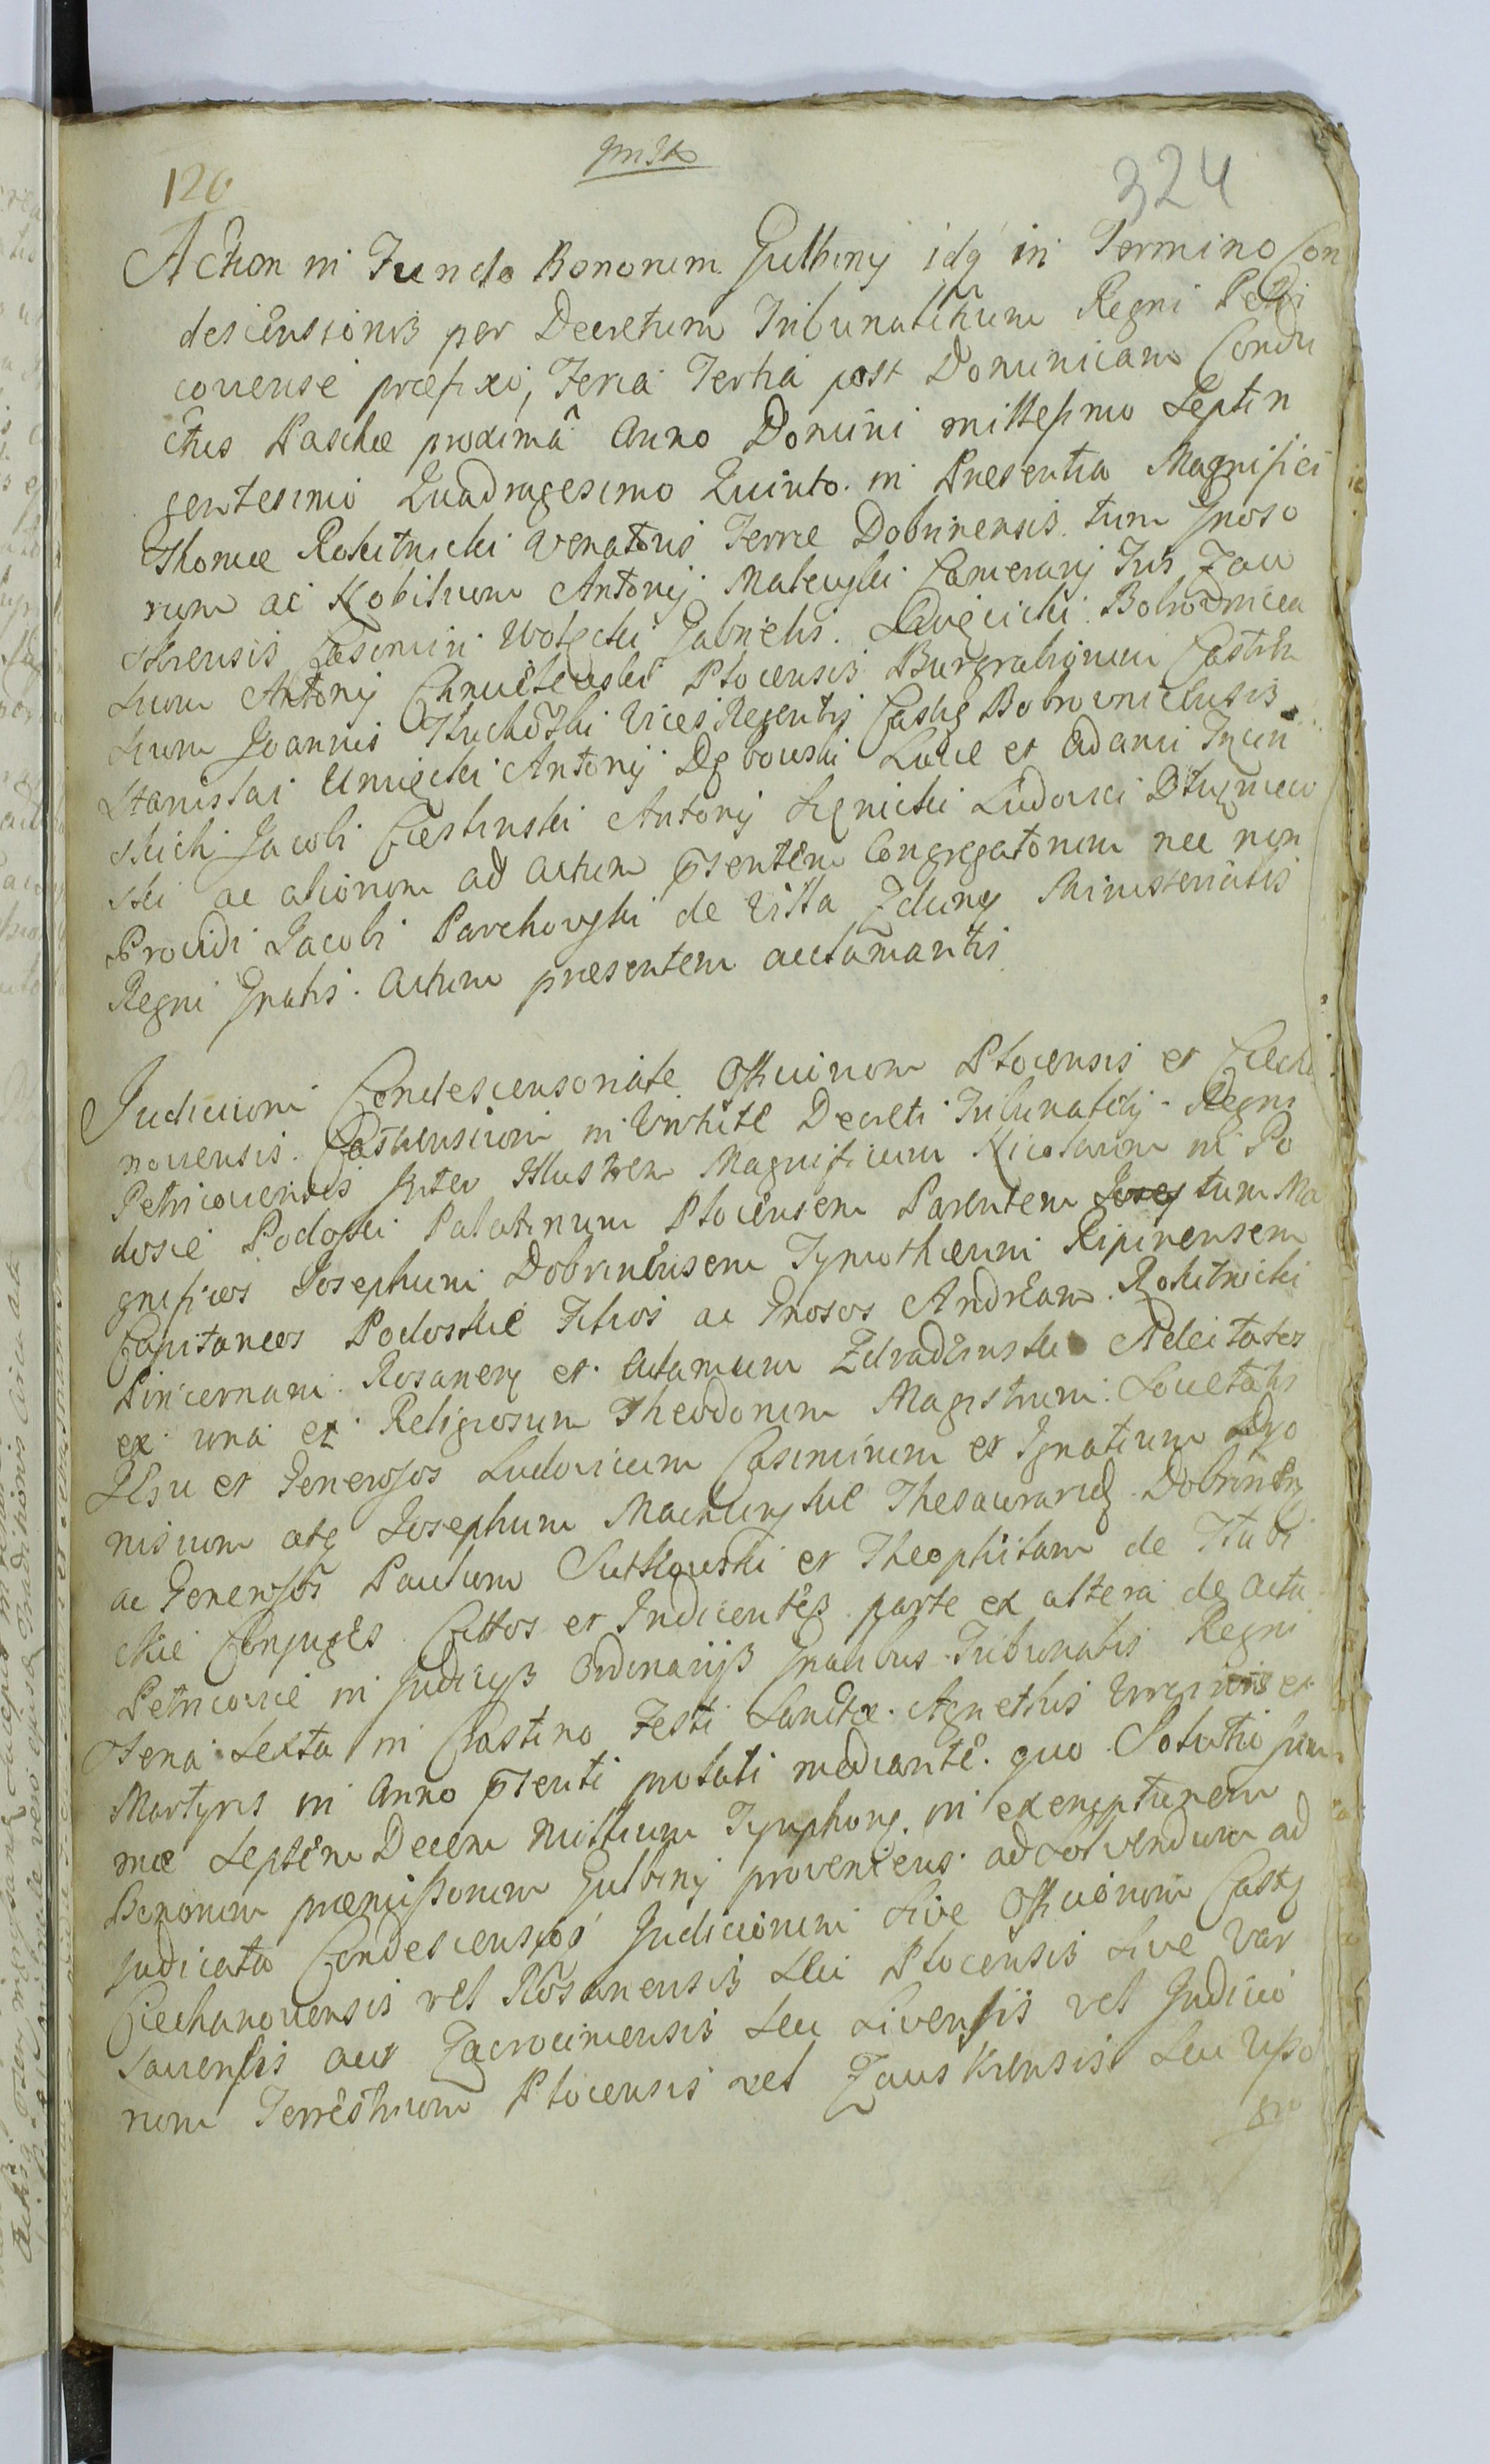 120
324
Actum in Fundo Bonorum Gulbiny idq in Termino Con
descensionis per Decretum Tribunalitium Regni Petri
coviense præfixo, Feria Tertia post Dominicam Condu
ctus Paschæ proxima Anno Domini millesimo Septin
gentesimo Quadragesimo Quinto. in Presentia Magnifici
Thomæ Rokitnicki Venatoris Terræ Dobrinensis. tum Gnoso
rum ac Nobilium Antonij Camerarij Zaw
skrensis Casimiri Gabrielis. Bobrovnicen
sium Antonij Plocensis Burgrabiorum Castren
sium Joannis Vices Regentis Bobrovnicensis
Stanislai Umięcki Antonij Dębowski Lucæ et Adami
skich Jacobi Cieslinski Antonij Ludovici
ski ac aliorum ad actum pšentem Congregatorum nec non
Providi Jacobi Parchowski de Villa Zduny Ministerialis
Regni Gnalis. Actum præsentem acclamantis
Judicium Condescensoriale Officiorum Plocensis et Ciecha
noviensis. Castrensium in Vim Decreti Tribunalis Regni
Petricoviensis Inter Illustrem Magnificum Nicolaum in Po
dosie Podoski Palatinum Plocensem Parentem tum Ma
gnificos Josephum Dobrinensem Tymotheum Ripinensem
Capitaneos Podoskie Filios ac Gnosos Andream Rokitnicki
Pincernam. Rosanen et Adamum Zdradzinski
ex una et Religiosum Theodorum Magistrum. Societatis
Jesu et Generosos Ludovicum Casimirum et Ignatium Dyo
nisium atq Josephum Thesaurarid Dobrinen
ac Generosos Paulum Sutkowski et Theophilam de
skie Conjuges Cittos et Indicentes parte ex altera de actu
Petricoviæ in Judicijs Ordinarijs Gnalibus Tribunalis Regni
Feria Sexta in Crastino Festi Sanctæ Agnethis Virginis et
Martyris in Anno pšenti prolati mediante. quo Solutio Sum
mæ Septem Decem Millium Tympphorum in exemptionem
Bonorum præmissorum Gulbiny proveniens ad solvendum ad
Judicata Judiciorum Sive Officiorum
Ciechanoviensis vel Rosanensis Seu Plocensis Sive Var
saviensis aut Zacrocimensis Seu Livensis vel Judicio
rum Terrestrium Plocensis vel Zauskrensis Seu Ipso